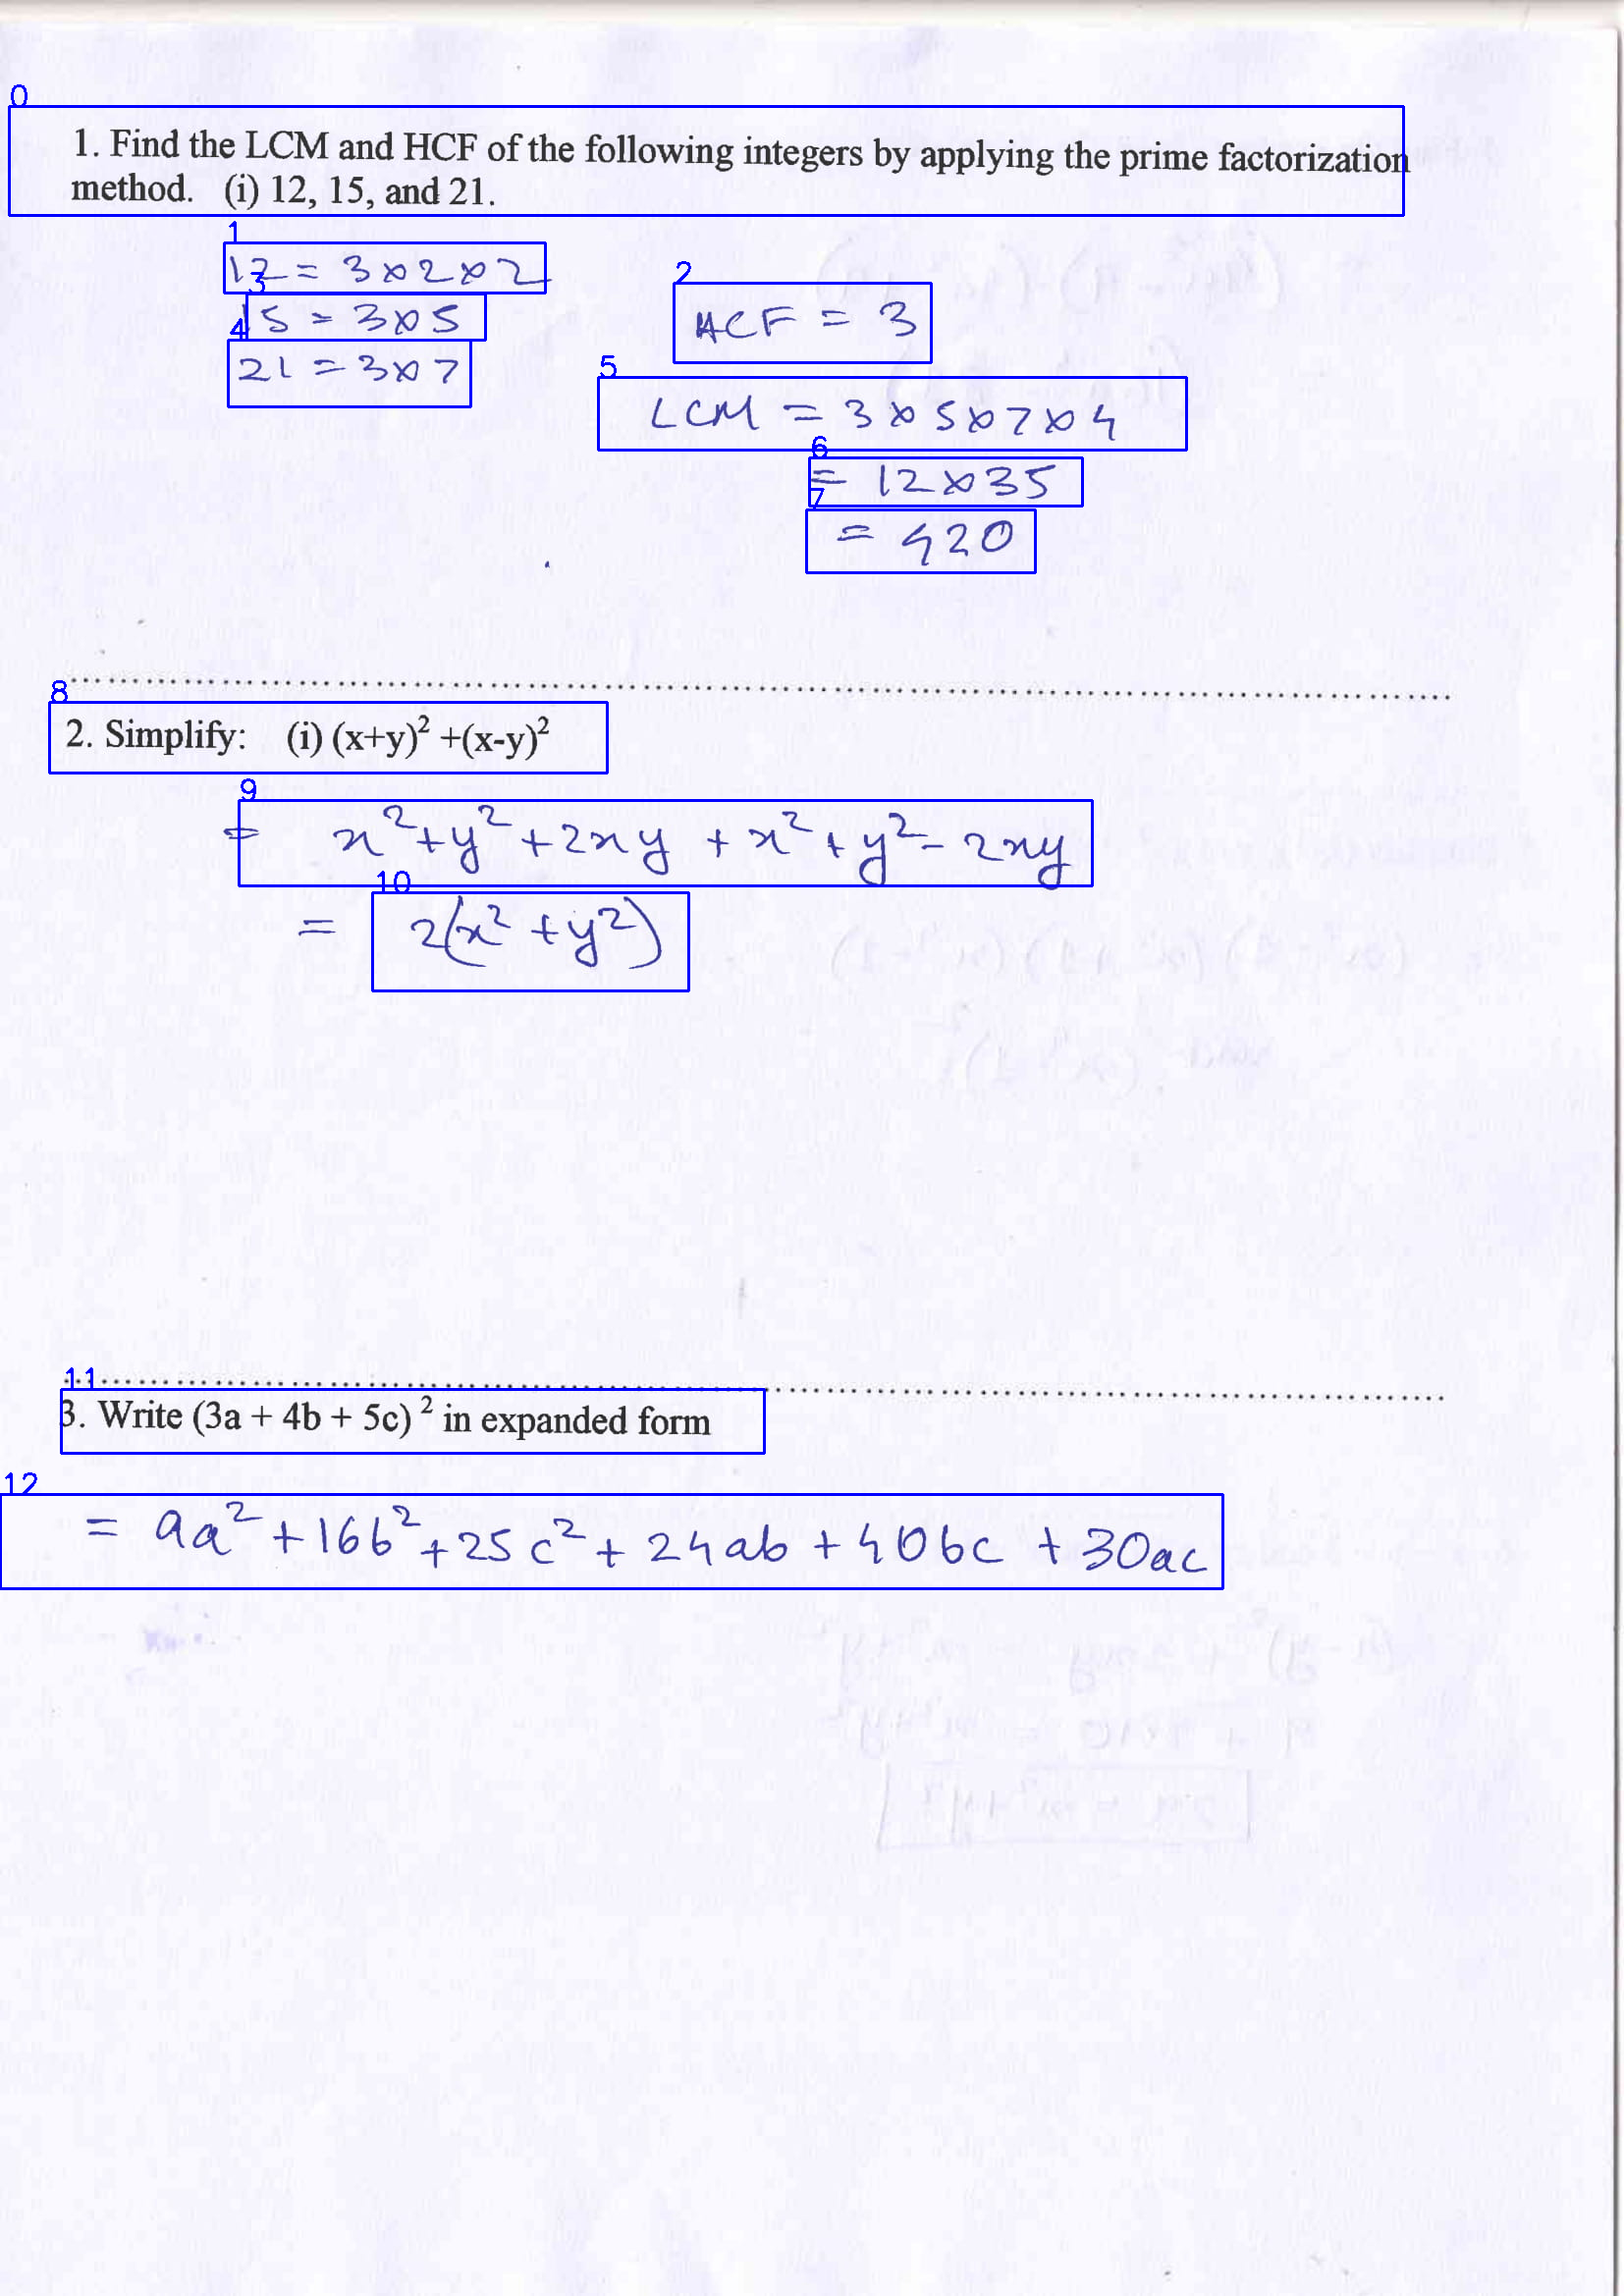 1. Find the LCM and HCF of the following integers by applying the prime factorization
method. (i) 12, 15, and 21.
12 = 3×2×2
15 = 3×5
21 = 3×7
HCF = 3
LCM = 3×5×7×4
= 12×35
= 420
2. Simplify: (i) (x+y)² +(x-y)²
= x²+y²+2xy + x²+y²- 2xy
= 2(x²+y²)
3. Write (3a + 4b + 5c) ² in expanded form
= 9a²+16b²+25c²+24ab+40bc+30ac